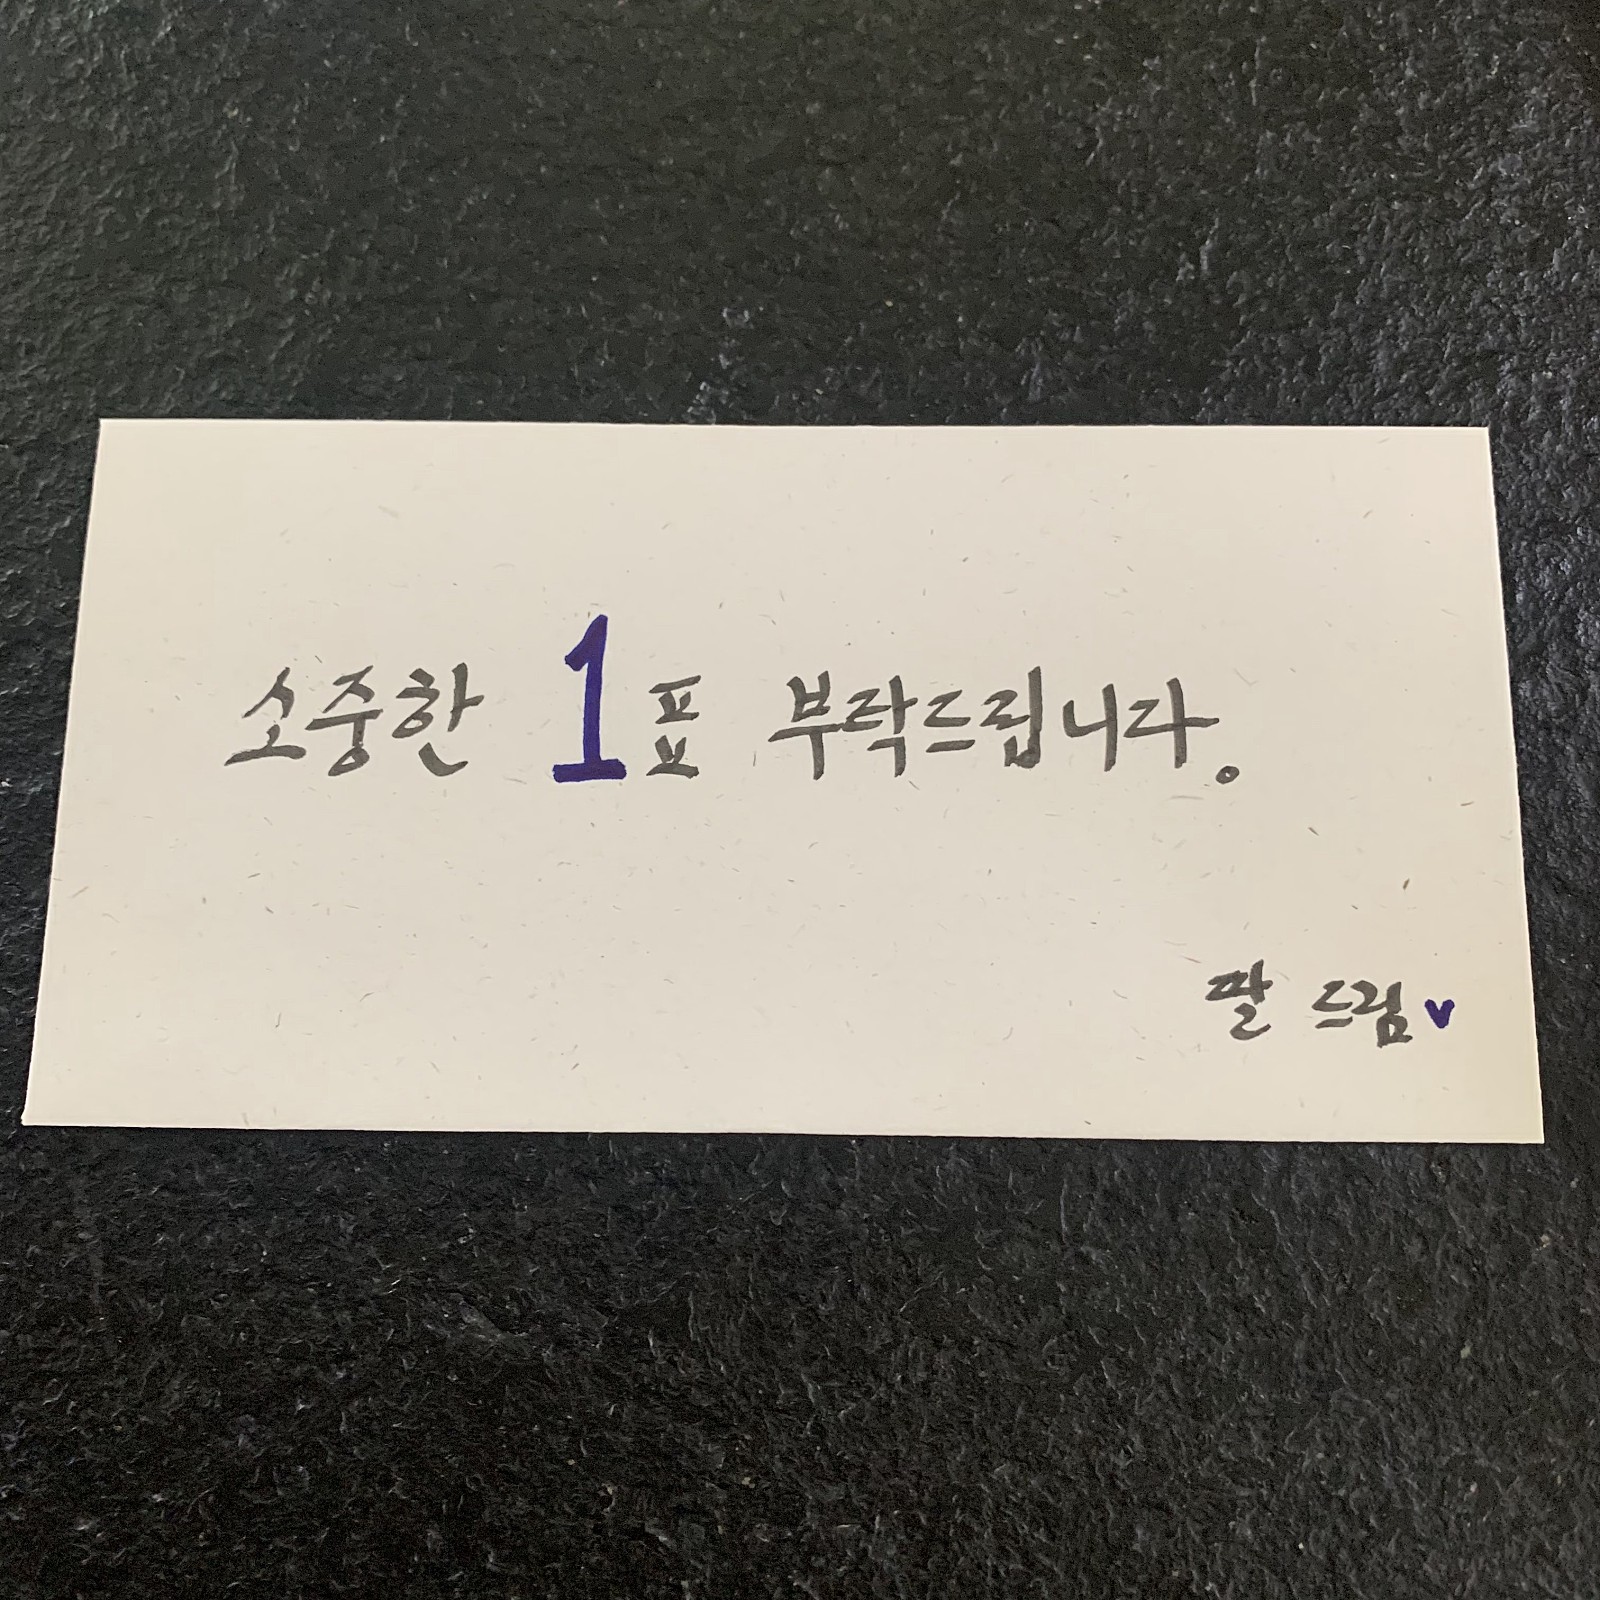 소중한 1표 부락드립니다。
딸 드림♥